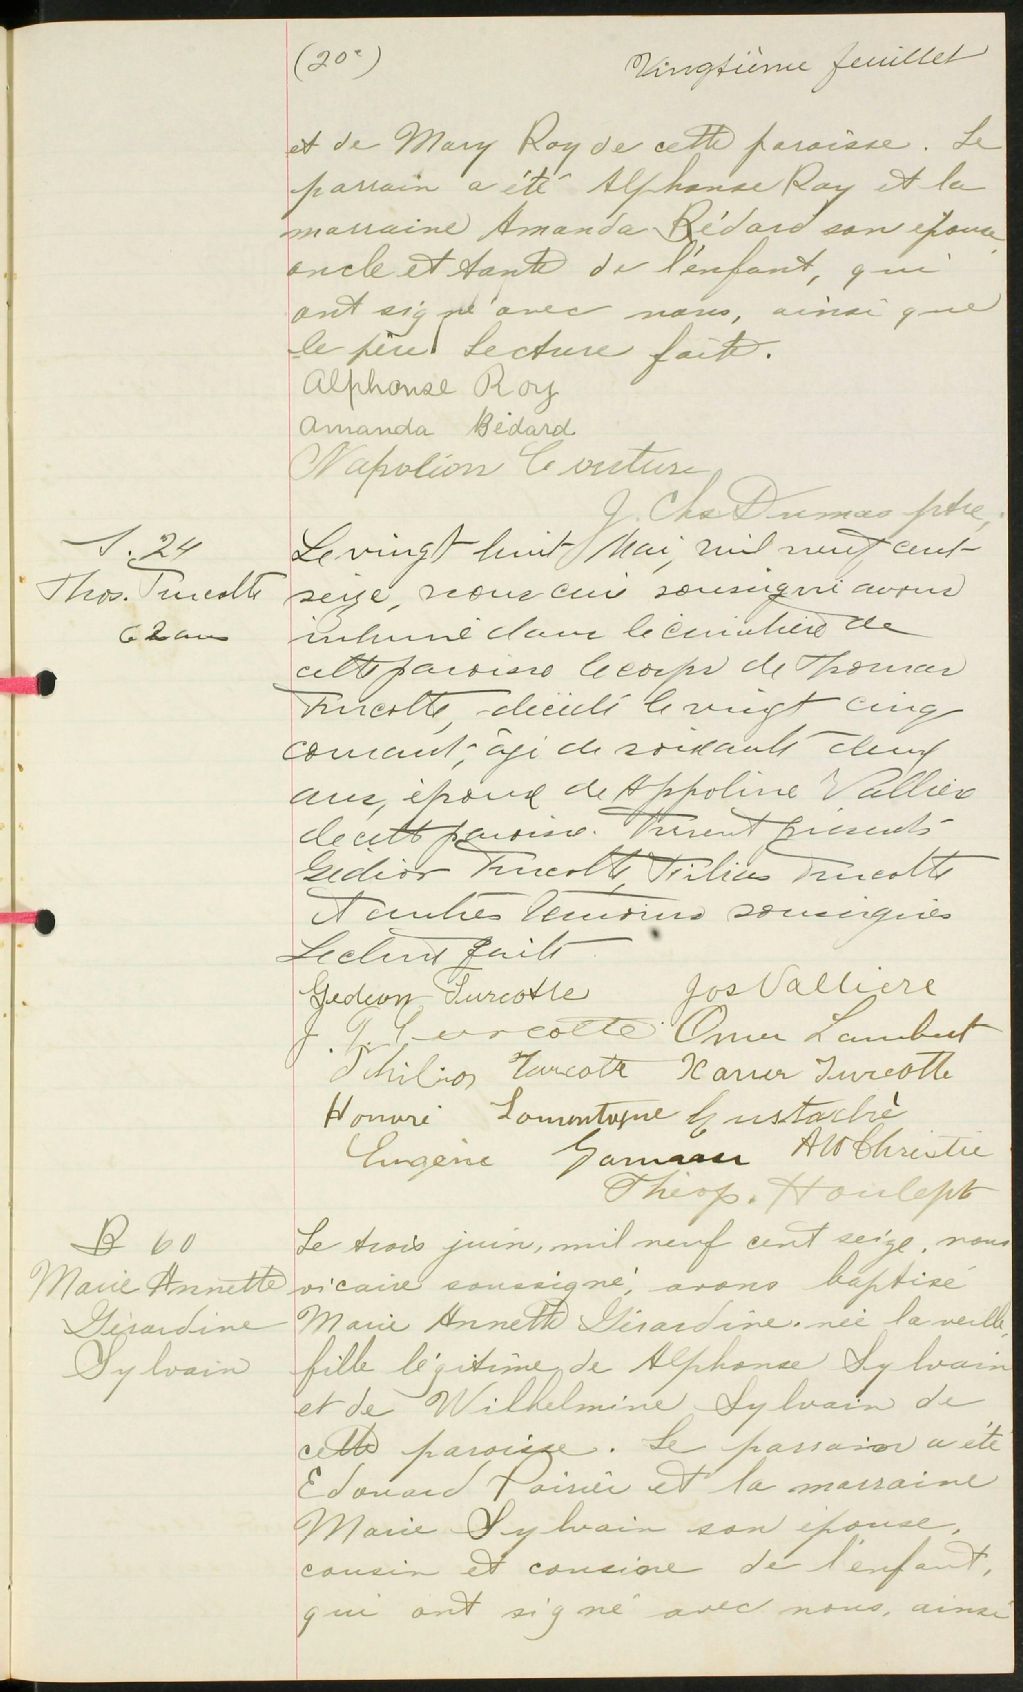 (20e) Vingtième feuillet
et de Mary Roy de cette paroisse. Le
parrain a été Alphonse Roy et la
marraine Amanda Bédard son épouse,
oncle et tante de l'enfant, qui
ont signé avec nous, ainsi que
le père. Lecture faite.
Alphonse Roy
Amanda Bédard
Napoléon Couture
J. Chs Dumas ptre,
S. 24
Thos. Turcotte
62 ans
Le vingt huit Mai, mil neuf cent
seize, nous curé soussigné avons
inhumé dans le cimetière de
cette paroisse le corps de Thomas
Turcotte, décédé le vingt cinq
courant, âgé de soixante deux
ans, époux de Appoline Vallière
de cette paroisse. Furent présents
Gédéon Turcotte, Philias Turcotte
et autres témoins soussignés
Lecture faite
Gedeon Turcotte Jos Valliere
J. Turcotte Omer Lambert
Philias Turcotte Xavier Turcotte
Honoré Lamontagne Eustache
Eugène Garneau AW Christie
Théop. Houle ptr
B 60
Marie Annette
Gérardine
Sylvain
Le trois juin, mil neuf cent seize, nous
vicaire soussigné, avons baptisé
Marie Annette Gérardine. née la veille,
fille légitime de Alphonse Sylvain
et de Wilhelmine Sylvain de
cette paroisse. Le parrain a été
Edouard Poirier et la marraine
Marie Sylvain son épouse,
cousin et cousine de l'enfant,
qui ont signé avec nous, ainsi